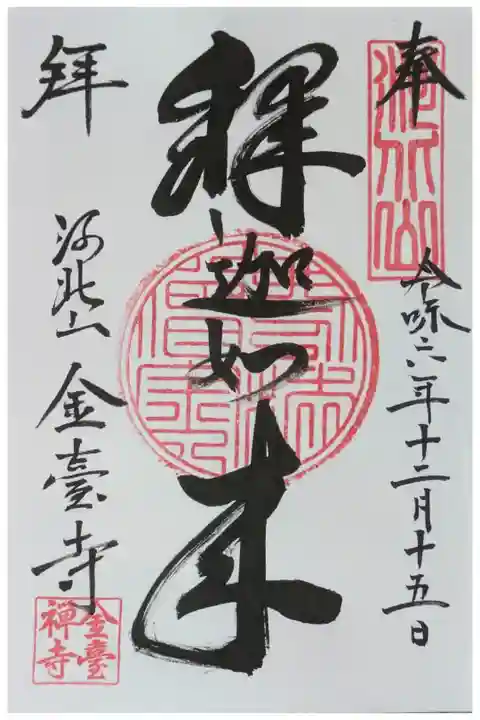 奉
令和六年十二月十五日
釋迦如来
拝
河北山 金臺寺
金臺
禅寺